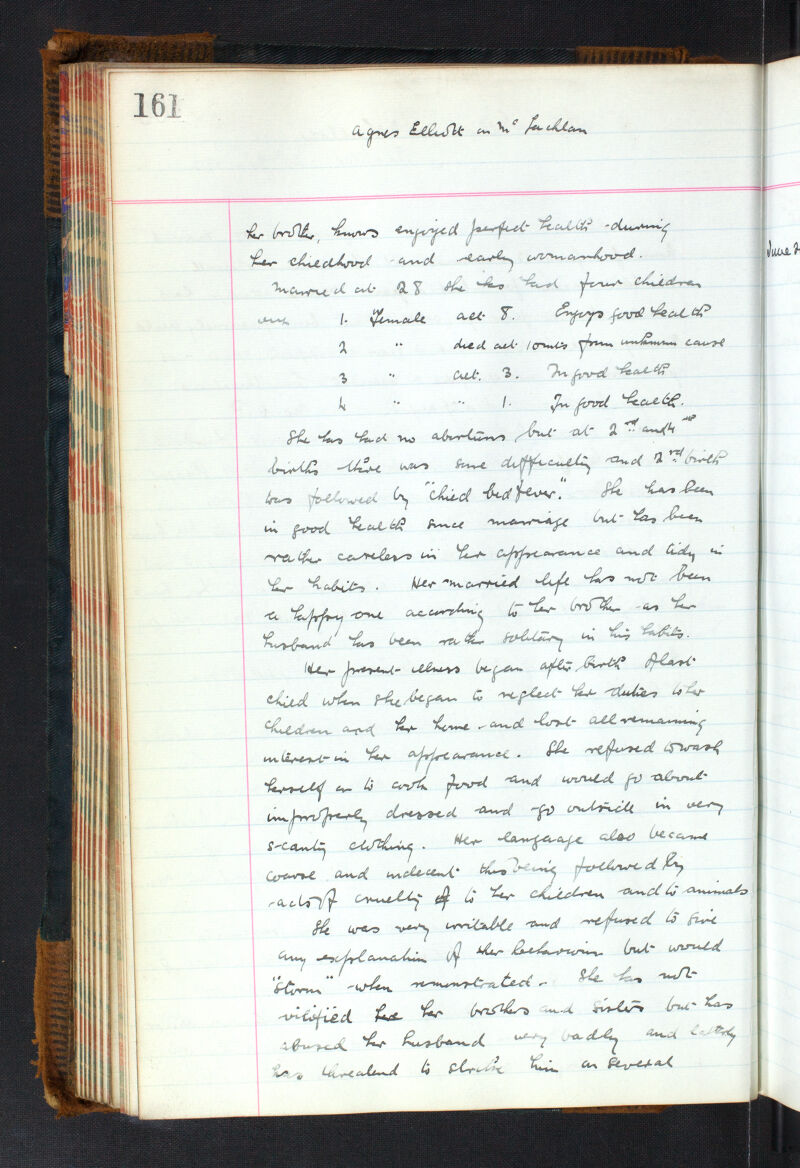 161
Agnes Elliott or Mc Lachlan
her brother, knows enjoyed perfect health during
her childhood and early womanhood.
June 2
Married at 28 she has had four children
1. Female aet 8. Enjoys good health
2 " died aet 10mts from unknown cause
3 " aet. 3. In good health
4 " " 1. In good health.
She has had no abortions but at 2nd and 4th
births there was some difficulty and 2nd birth
was followed by "child bed fever". She has been
in good health since marriage but has been
rather careless in her appearance and tidy in
her habits. Her married life has not been
a happy one according to her brother as her
husband has been rather solitary in his habits.
Her present illness began after birth of last
child when she began to neglect her duties to her
children and her home and lost all remaining
interest in her appearance. She refused to wash
herself or to cook food and would go about
improperly dressed and go outside in very
scanty clothing. Her language also became
coarse and indecent this being followed by
acts of cruelty of to her children and to animals
She was very irritable and refused to give
any explanation of her behaviour but would
"storm" when remonstrated. She has not
vilified her her brothers and sisters but has
abused her husband very badly and latterly
has threatend to strike him on several